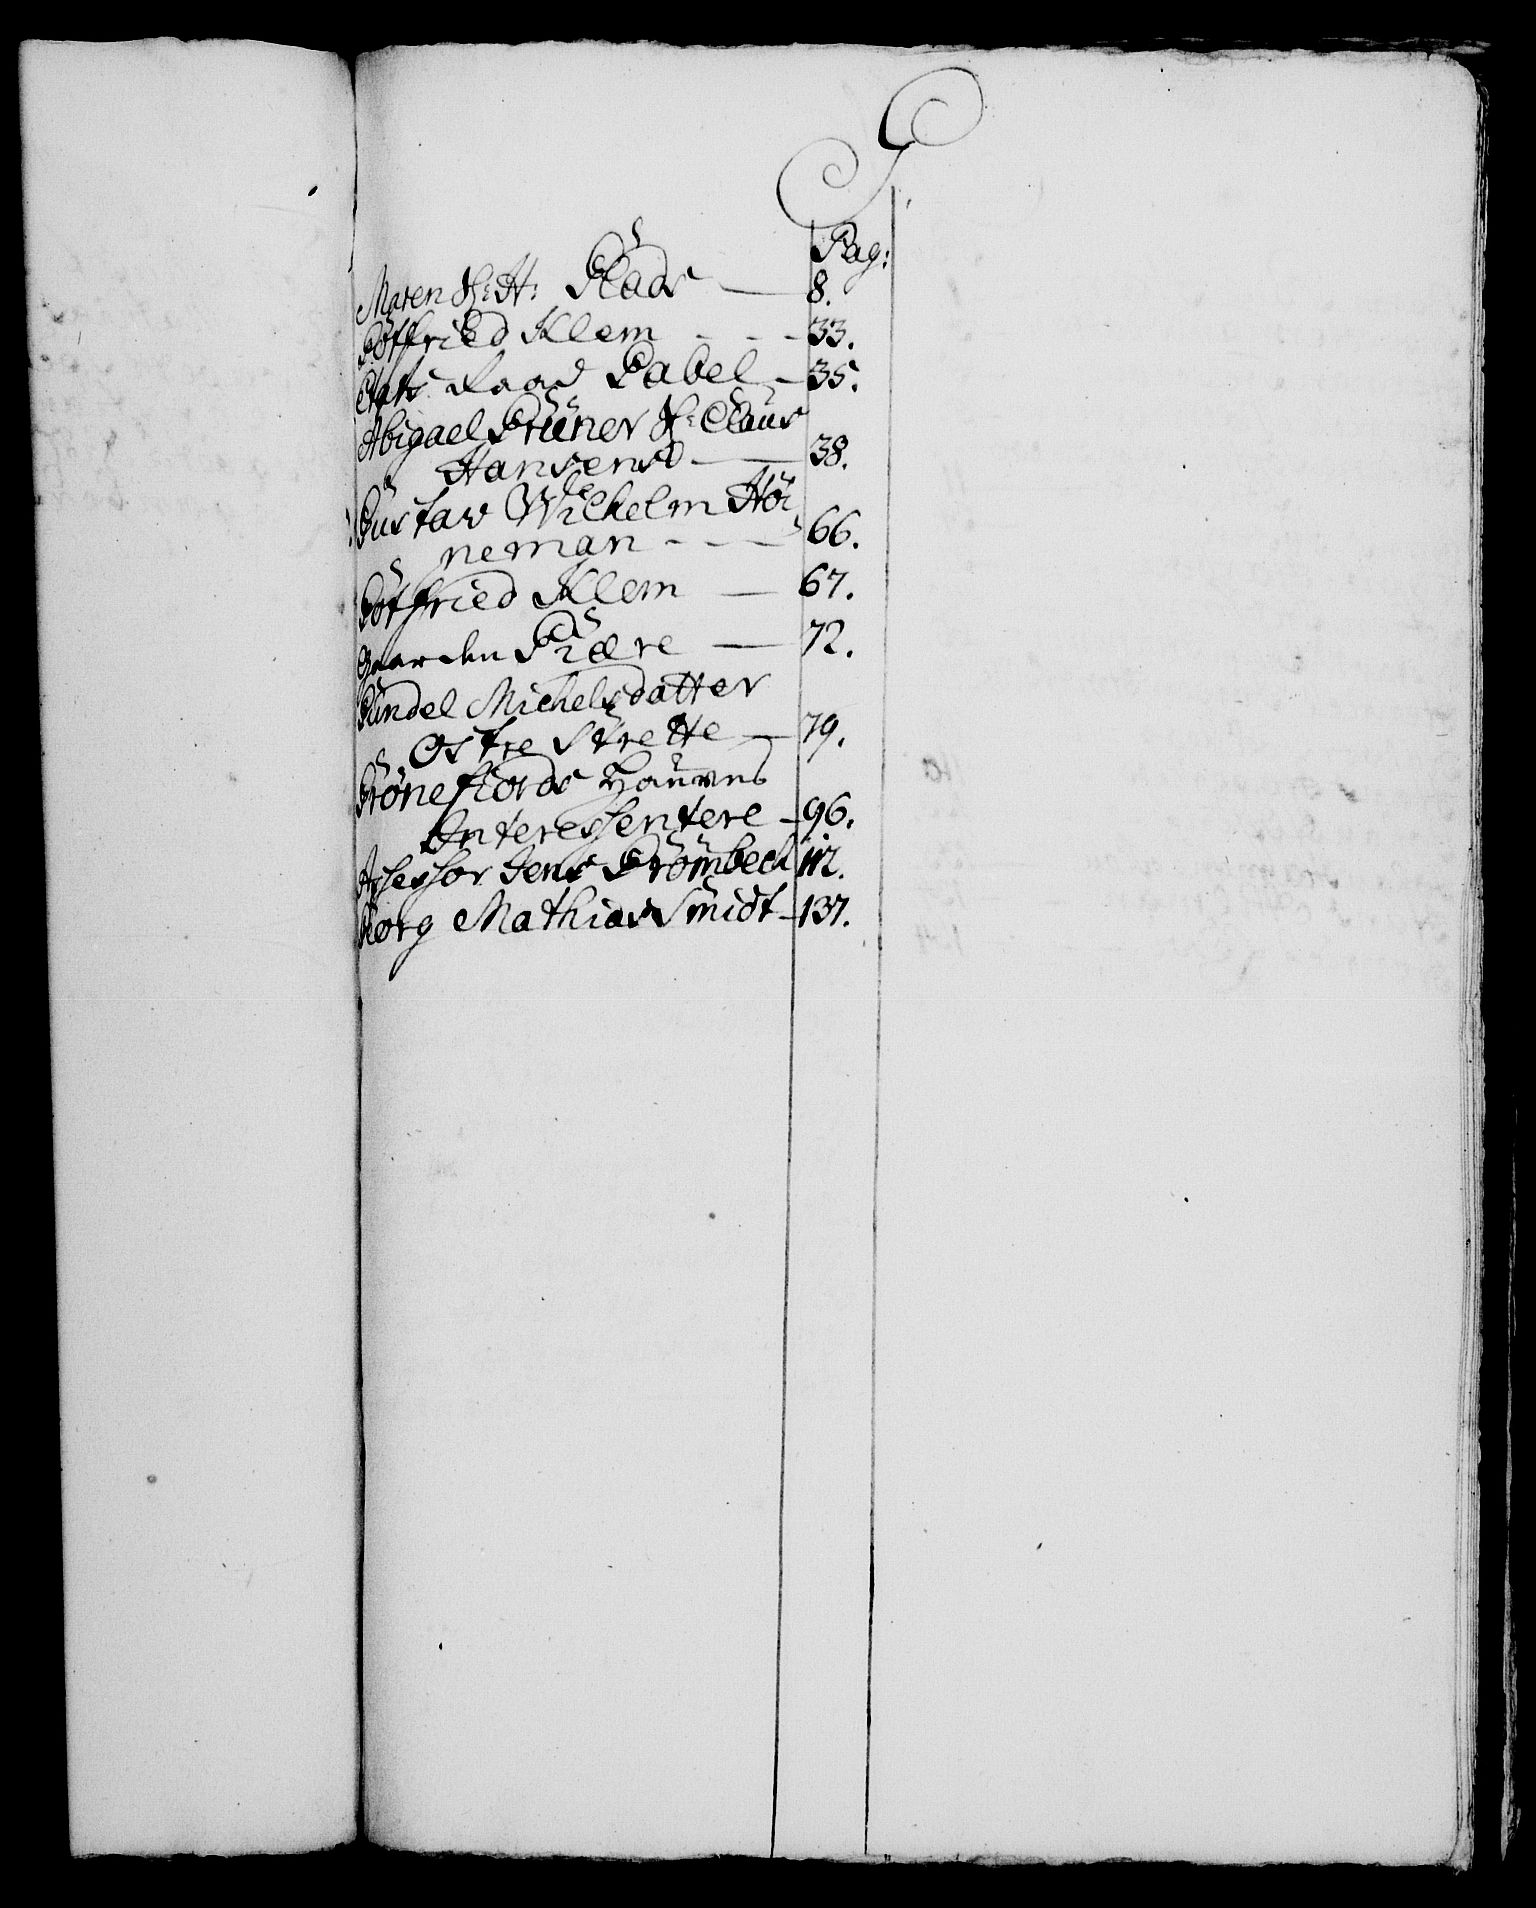 G
Pag:
Maren Sr: H: Glads — 8.
Gotfried Klem - - - 33.
Etats Raad Gabel — 35.
Abigael Grüner Sr: Claus
Hansens — 38.
Gustav Wilhelm Hör
neman - - - 66.
Gotfried Klem — 67.
Gaarden Giære — 72.
Gundel Michelsdatter
Ostre Strette — 79.
Grönefiords Haufns
Interessentere — 96.
Assessor Jens Grömbech 112.
Georg Mathias Smidt — 137.